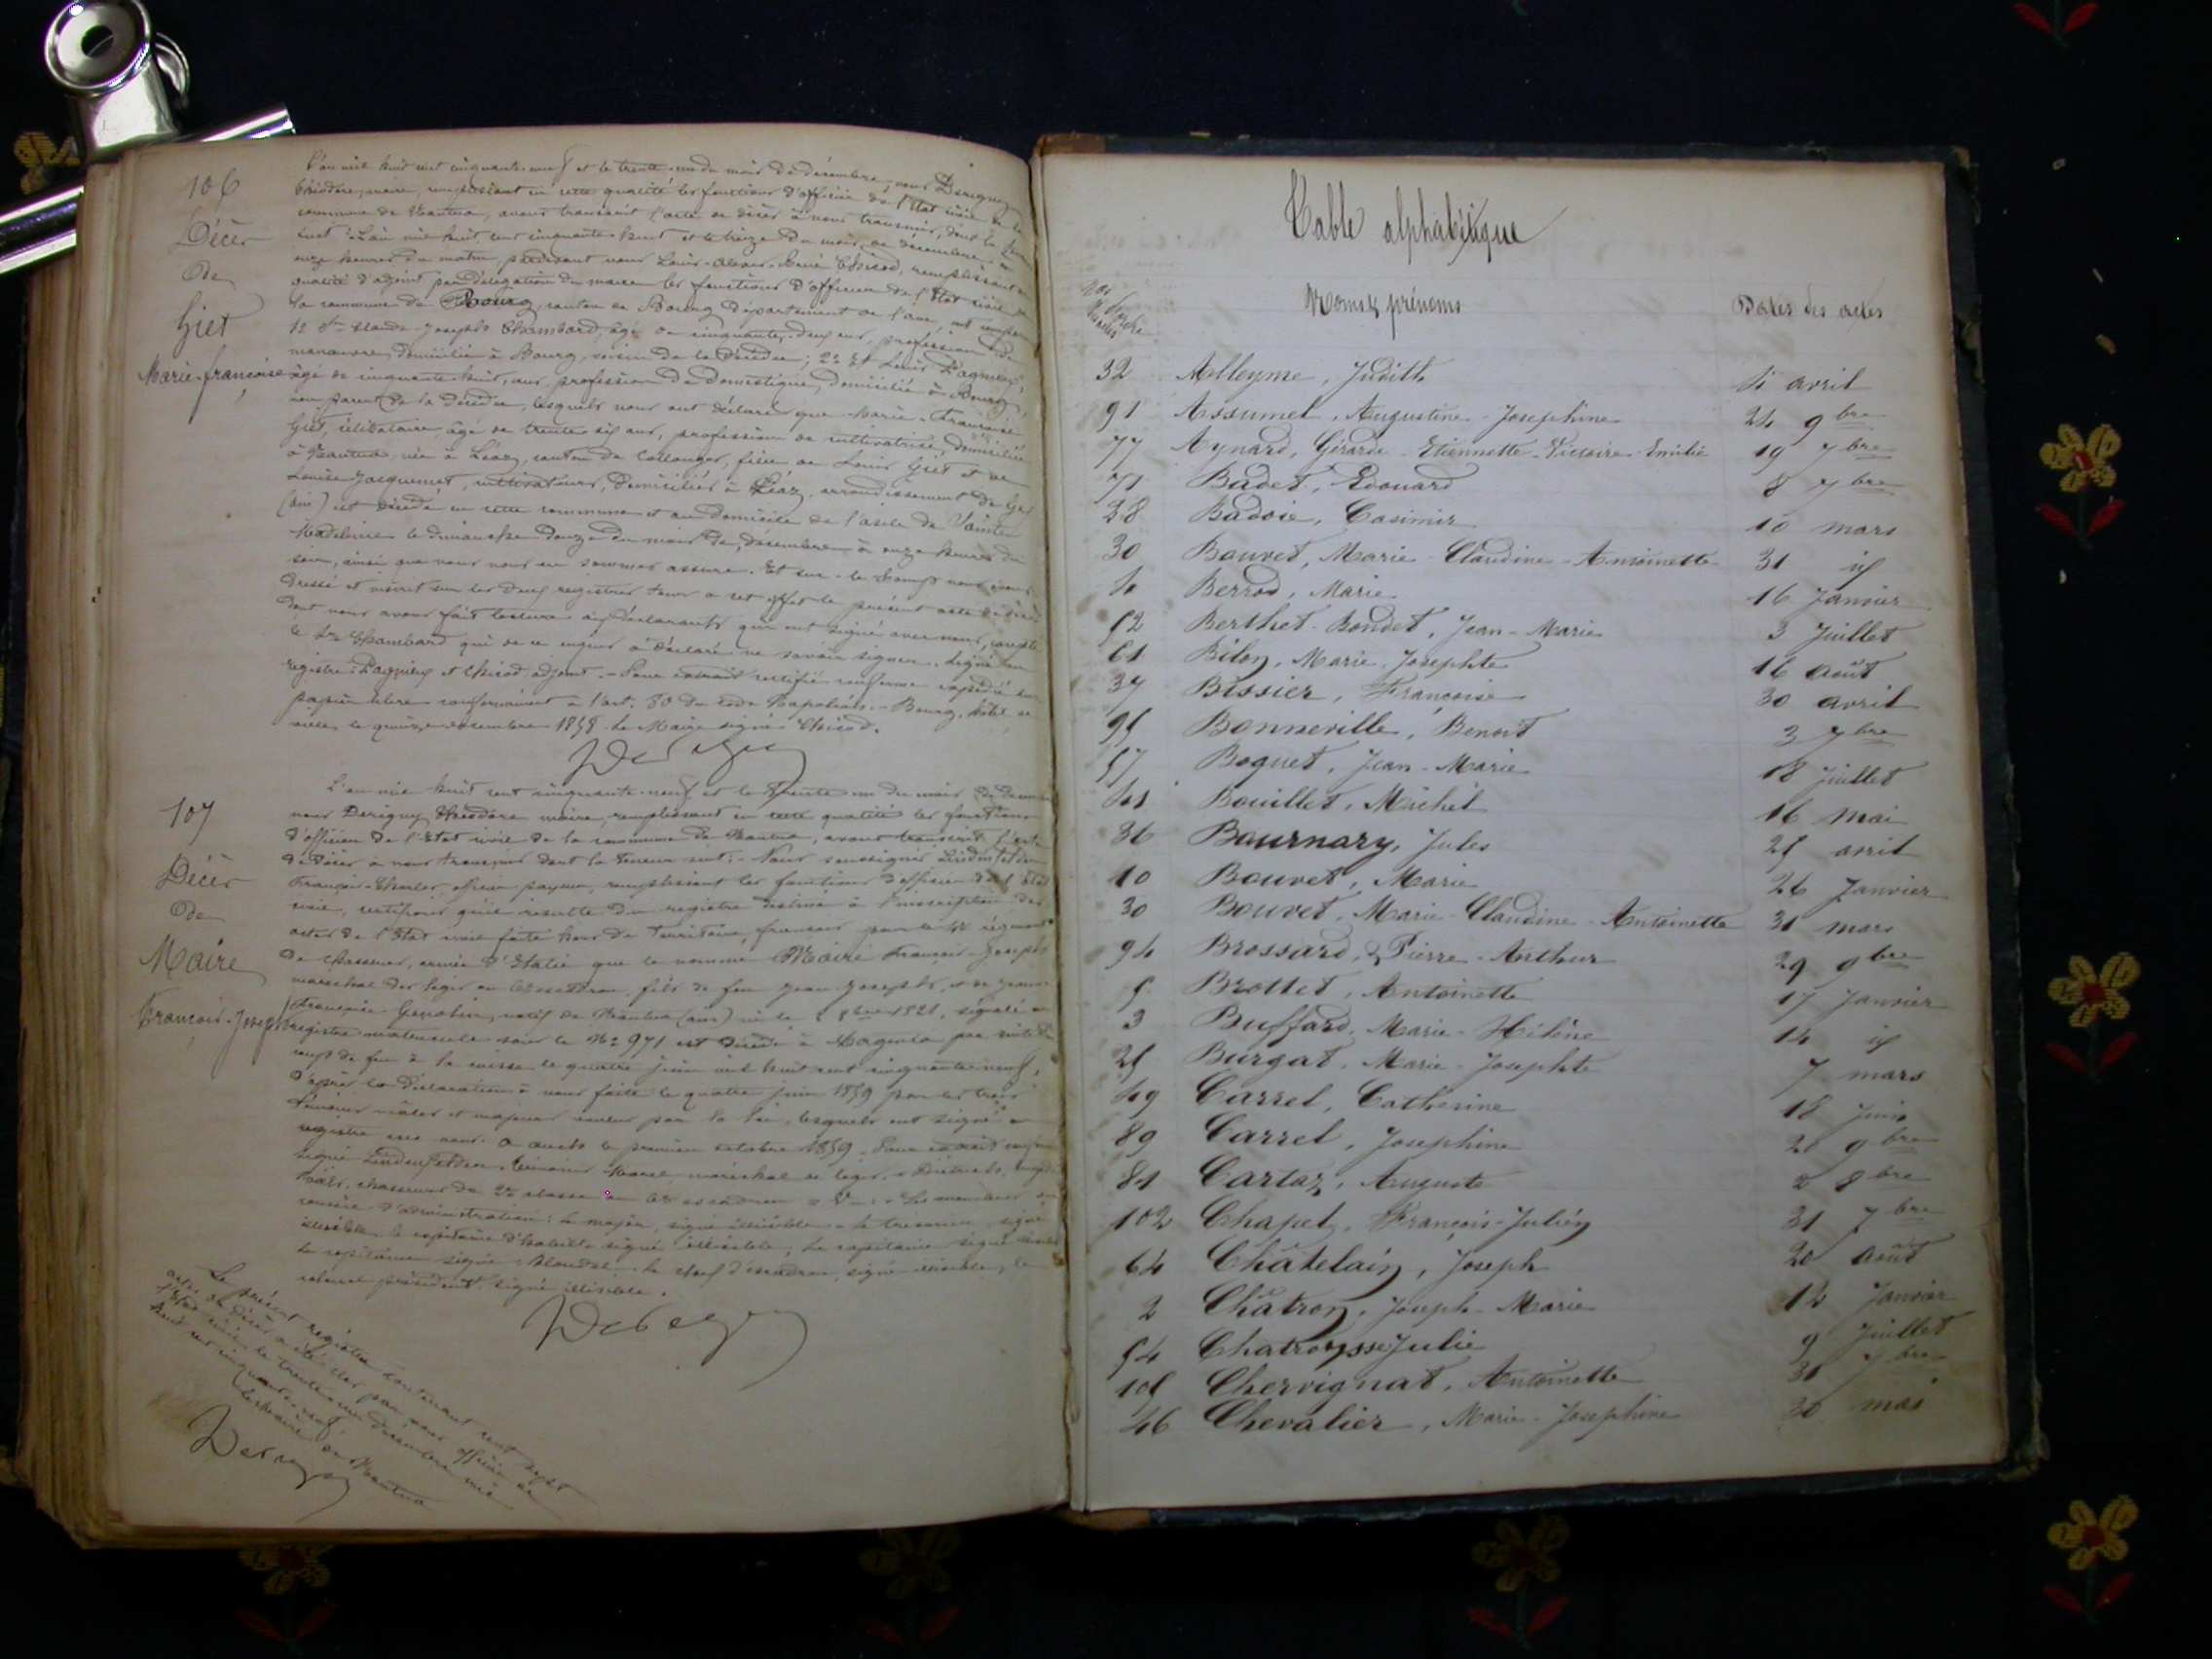 106
Décès
de
Giet
Marie-françoise
L'an mil huit cent cinquante-neuf et le trente-un du mois de décembre, nous Derigny
théodore, maire, remplissant en cette qualité les fonctions d'officier de l'état civil de la
commune de Nantua, avons transcrit l'acte de décès à nous transmis, dont la teneur
suit : L'an mil huit cent cinquante-huit et le treize du mois de décembre à
onze heures du matin, pardevant nous Louis- René Chicod, remplissant en
qualité d'adjoint par délégation du maire les fonctions d'officier de l'état civil de
la commune de Bourg, canton de Bourg département de l'ain, ont comparu
1º Sr Claude-Joseph Chambard, âgé de cinquante-deux ans, profession de
manœuvre, domicilié à Bourg, voisin de la décédée ; 2º Sr Louis Pagneux,
âgé de cinquante-huit ans, profession de domestique, domicilié à Bourg,
non parent de la décédée, lesquels nous ont déclaré que Marie-Françoise
Giet, célibataire, âgée de trente-six ans, profession de cultivatrice, domiciliée
à Nantua, née à Léaz, canton de Collonges, fille de Louis Giet et de
Louise Jacquemet, cultivateurs, domiciliés à Léaz, arrondissement de Gex
(ain) est décédée en cette commune et au domicile de l'asile de Sainte
Madeleine le dimanche douze du mois de décembre à onze heures du
soir, ainsi que nous nous en sommes assuré. Et sur-le-champ nous avons
dressé et inscrit sur les deux registres tenus à cet effet le présent acte de décès
dont nous avons fait lecture aux déclarants qui ont signé avec nous, excepté
le Sr Chambard qui de ce enquis a déclaré ne savoir signer. Signé au
registre : Pagneux et Chicod adjoint. - Pour extrait certifié conforme expédié sur
papier libre conformément à l'art. 80 du code Napoléon. - Bourg, hôtel de
ville, le quinze décembre 1858. Le Maire signé Chicod.
107
Décès
de
Maire
François-Joseph
L'an mil huit cent cinquante-neuf et le trente-un du mois de décembre
nous Derigny théodore maire, remplissant en cette qualité les fonctions
d'officier de l'état civil de la commune de Nantua, avons transcrit l'acte
de décès à nous transmis dont la teneur suit : - Nous soussigné
François-Charles, officier payeur, remplissant les fonctions d'officier de l'état
civil, certifions qu'il résulte du registre destiné à l'inscription des
actes de l'état civil faits hors du territoire français pour le régiment
de chasseurs, armée d'Italie que le nommé Maire François-Joseph
maréchal des logis au escadron, fils de feu Jean-Joseph, et de
françoise natif de Nantua (ain) né le 1821, signalé au
registre matricule sous le Nº 971 est décédé à Magenta par suite de
coup de feu à la cuisse le quatre juin mil huit cent cinquante-neuf,
d'après la déclaration à nous faite le quatre juin 1859 par les trois
témoins mâles et majeurs voulus par la loi, lesquels ont signé au
registre avec nous. le premier octobre 1859 - Pour extrait conforme
signé témoins maréchal des logis,
chasseur de 2e classe au escadron - Les membres du
conseil d'administration : le major, signé illisible - le trésorier, signé
illisible, le capitaine d'habillt signé illisible, Le capitaine signé
Le capitaine signé Blondel - le chef d'escadron, signé illisible, le
colonel président signé illisible.
Le présent registre contenant cent sept
actes de décès a été clos par nous officier de
l'état civil le trente-un décembre mil
huit cent cinquante-neuf
Le Maire de Nantua
Table alphabétique
Noms & prénoms
Dates des actes
32 Alleyme, Judith 4 avril
91 Assumel, Augustine-Josephine 24 9bre
77 Aynard, Girarde-Etiennette-Victoire-Emilie 19 7bre
71 Badet, Edouard 8 7bre
28 Badoie, Casimir 10 mars
30 Bouvet, Marie-Claudine-Antoinette 31 id
4 Berrod, Marie 16 Janvier
52 Berthet-Bondet, Jean-Marie 3 Juillet
61 Bilon, Marie-Josephte 16 août
37 Bissier, Françoise 30 avril
95 Bonneville, Benoit 3 7bre
57 Boguet, Jean-Marie 18 Juillet
41 Bouillet, Michel 16 mai
36 Bournary, Jules 25 avril
10 Bouvet, Marie 26 Janvier
30 Bouvet, Marie-Claudine-Antoinette 31 mars
94 Brossard, Pierre-Arthur 29 9bre
5 Brottet, Antoinette 17 Janvier
3 Buffard, Marie-Hélène 14 id
25 Burgat, Marie-Josephte 7 mars
49 Carrel, Catherine 18 Juin
89 Carrel, Josephine 20 9bre
81 Cartaz, Auguste 2 8bre
102 Chapel, François-Julien 31 7bre
64 Châtelain, Joseph 20 août
2 Châtron, Joseph-Marie 12 Janvier
54 Chatronsse Julie 9 Juillet
105 Chervignat, Antoinette 31 7bre
46 Chevalier, Marie-Josephine 30 mai